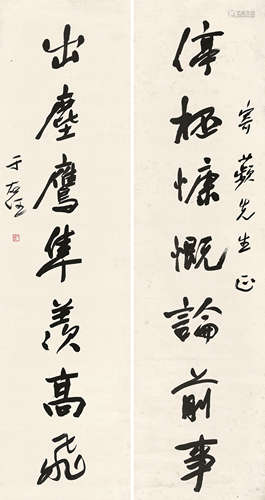 寄蘋先生正
停柸慷慨論前事
出塵鷹隼羨高飛
于右任